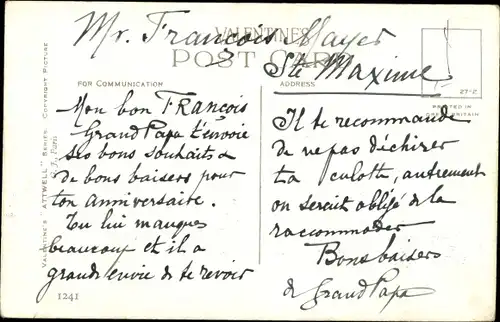 Mr. François Mayer
VALENTINES
POST CARD
Ste Maxime
FOR COMMUNICATION
ADDRESS
27-2
PRINTED IN
GREAT BRITAIN
VALENTINE'S "ATTWELL" SERIES. COPYRIGHT PICTURE
Paris
Mon bon FRANÇOIS
Grand Papa t'envoie
ses bons souhaits &
de bons baisers pour
ton anniversaire.
Tu lui manques
beaucoup et il a
grande envie de te revoir
1241
Il te recommande
de ne pas déchirer
ta culotte, autrement
on serait obligé de la
raccommoder
Bons baisers
de Grand Papa